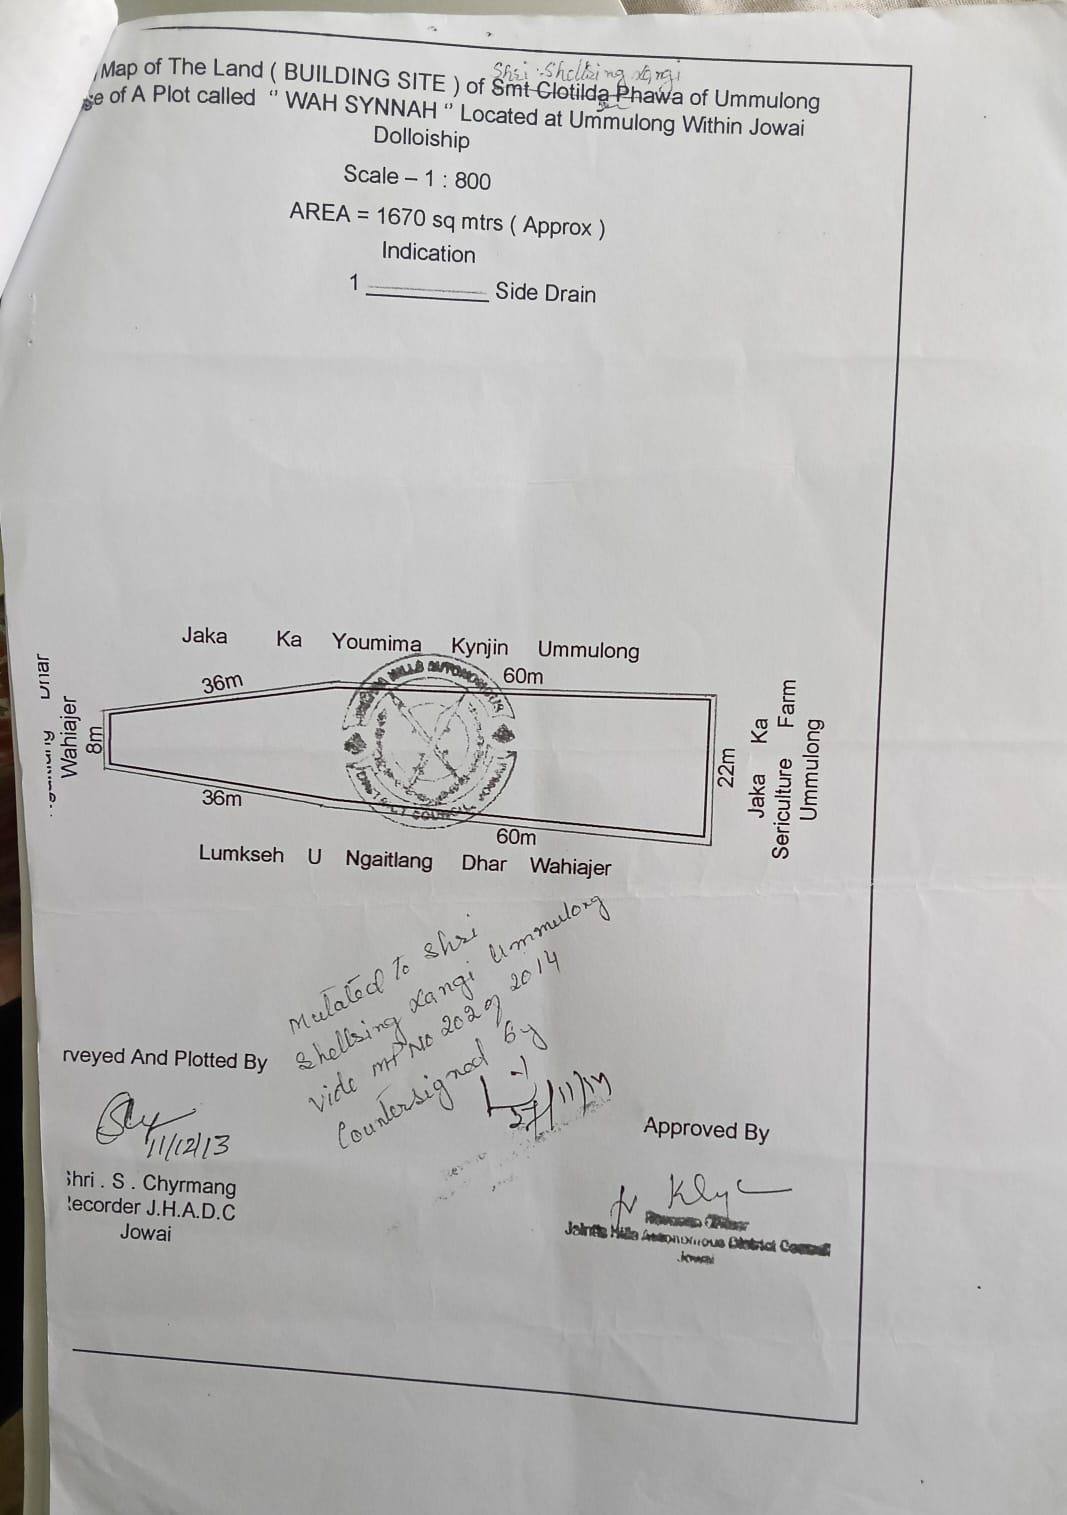 Shri . Shellsing Langi
Map of The Land ( BUILDING SITE ) of Smt Clotilda Phawa of Ummulong
se of A Plot called “ WAH SYNNAH “ Located at Ummulong Within Jowai
Dolloiship
Scale – 1 : 800
AREA = 1670 sq mtrs ( Approx )
Indication
1 Side Drain
Jaka Ka Youmima Kynjin Ummulong
36m
60m
Dhar
Wahiajer
8m
22m
Jaka Ka
Sericulture Farm
Ummulong
HILLS AUTONOMOUS
DISTRICT COUNCIL JOWAI
36m
60m
Lumkseh U Ngaitlang Dhar Wahiajer
Mutated To Shri
Shellsing Langi Ummulong
vide MP No 202 of 2014
Countersigned by
27/11/14
rveyed And Plotted By
11/12/13
Shri . S . Chyrmang
Recorder J.H.A.D.C
Jowai
Approved By
Revenue Officer
Jaintia Hills Autonomous District Council
Jowai